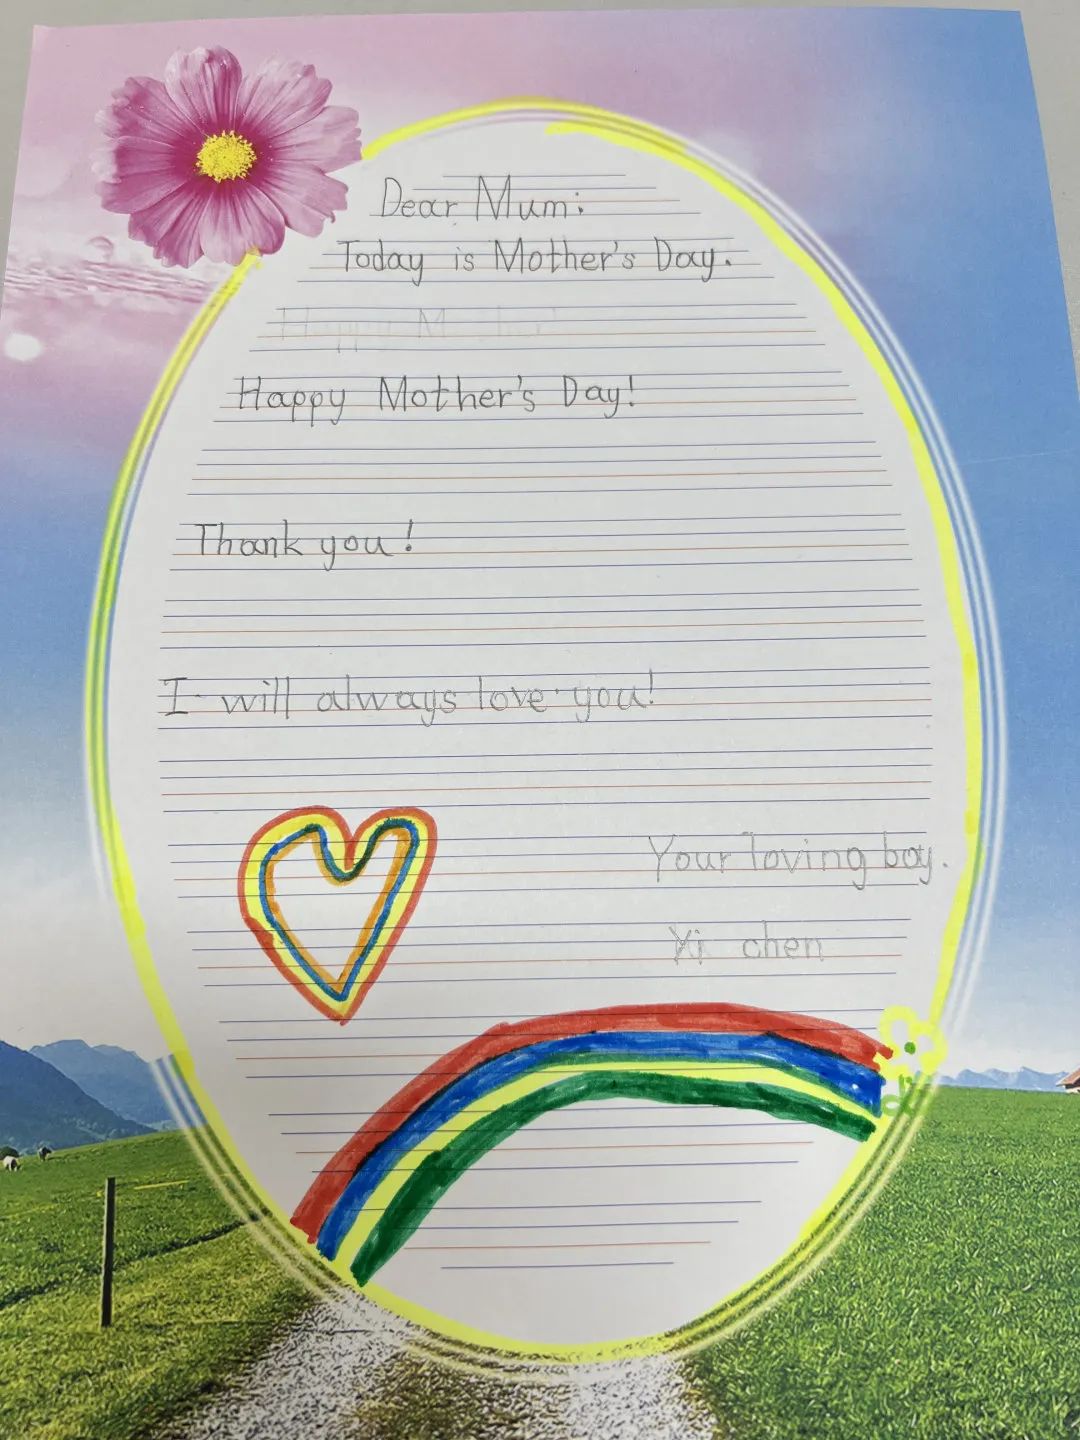 Dear Mum:
Today is Mother's Day.
Happy Mother'
Happy Mother's Day!
Thank you!
I will always love you!
Your loving boy.
Yi chen